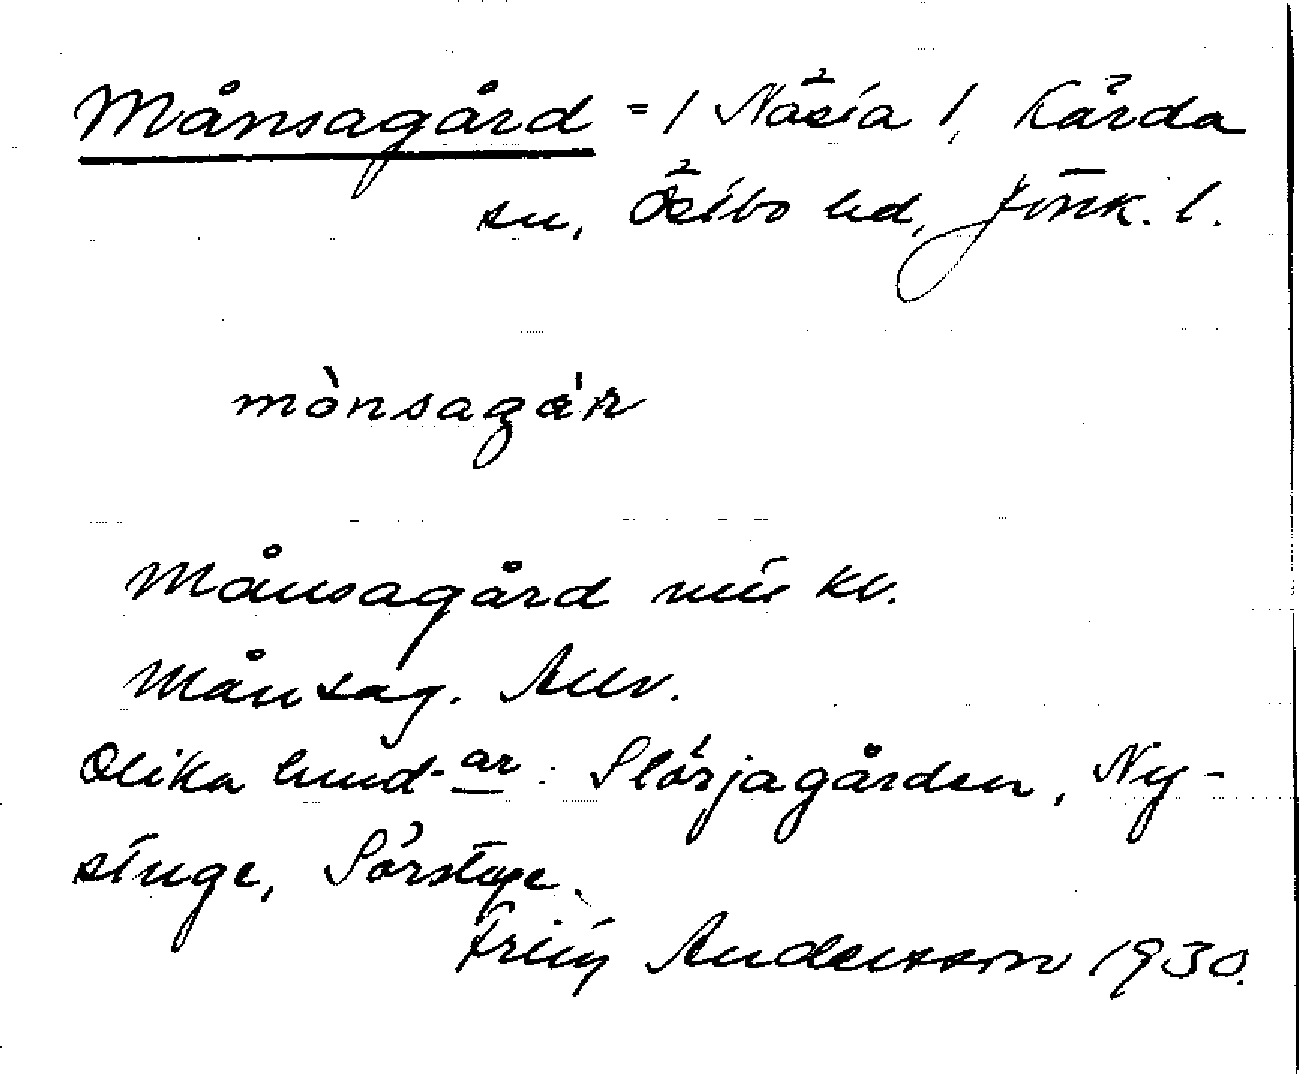 Månsagård = 1 Nästa 1, Kärda
sn, Östbo hd, Jönk. l.
mònsagá́r
Månsagård nu kv.
Månsag. Auv.
Olika hmd-ar: Slörjagården, Ny-
stuge, Sörstuge.
Andersson 1930.